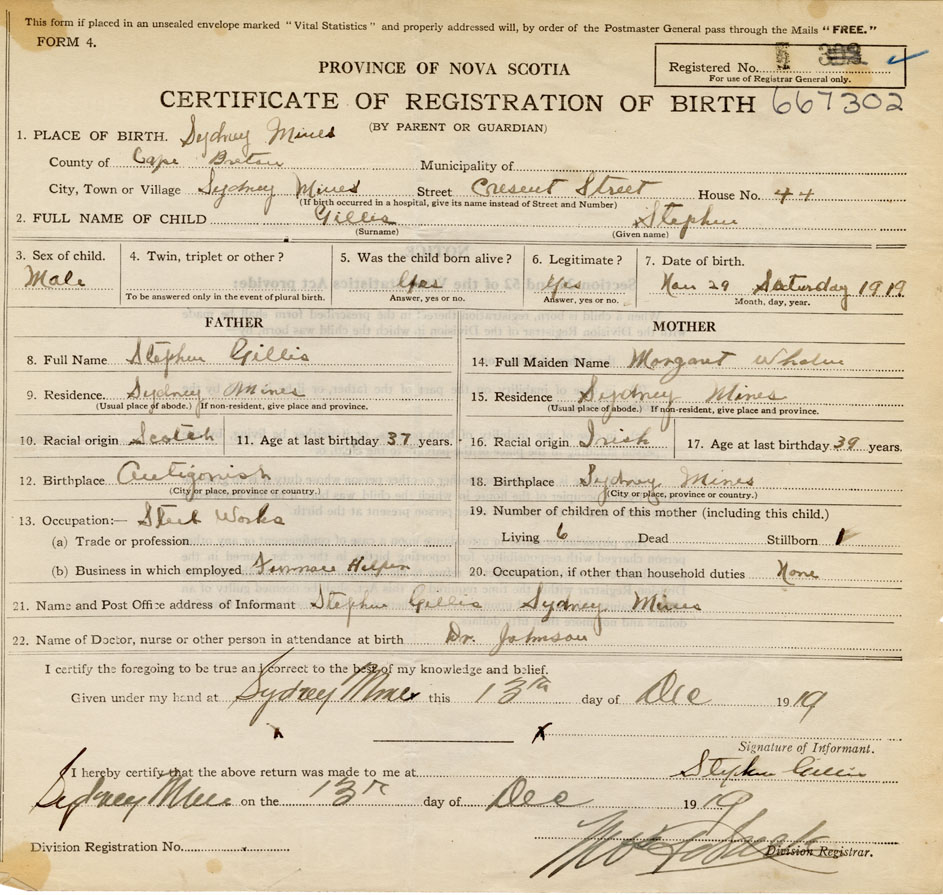 This form if placed in an unsealed envelope marked "Vital Statistics" and properly addressed will, by order of the Postmaster General pass through the Mails "FREE."
FORM 4.
Registered No.
For use of Registrar General only.
PROVINCE OF NOVA SCOTIA
CERTIFICATE OF REGISTRATION OF BIRTH 667302
(BY PARENT OR GUARDIAN)
1. PLACE OF BIRTH. Sydney Mines
County of Cape Breton Municipality of
City, Town or Village Sydney Mines Street Cresent Street House No. 44
(If birth occurred in a hospital, give its name instead of Street and Number)
2. FULL NAME OF CHILD Gillis Stephen
(Surname) (Given name)
3. Sex of child. 4. Twin, triplet or other? 5. Was the child born alive? 6. Legitimate? 7. Date of birth.
Male Yes Yes Nov 29 Saturday 1919
To be answered only in the event of plural birth. Answer, yes or no. Answer, yes or no. Month, day, year.
FATHER MOTHER
8. Full Name Stephen Gillis 14. Full Maiden Name Margaret
9. Residence. Sydney Mines 15. Residence Sydney Mines
(Usual place of abode.) If non-resident, give place and province. (Usual place of abode.) If non-resident, give place and province.
10. Racial origin Scotch 11. Age at last birthday 37 years. 16. Racial origin Irish 17. Age at last birthday 39 years.
12. Birthplace Antigonish 18. Birthplace Sydney Mines
(City or place, province or country.) (City or place, province or country.)
13. Occupation:— Steel Works 19. Number of children of this mother (including this child.)
(a) Trade or profession Living 6 Dead Stillborn 1
(b) Business in which employed Furnace Helper 20. Occupation, if other than household duties None
21. Name and Post Office address of Informant Stephen Gillis Sydney Mines
22. Name of Doctor, nurse or other person in attendance at birth Dr. Johnson
I certify the foregoing to be true and correct to the best of my knowledge and belief.
Given under my hand at Sydney Mines this 13th day of Dec 1919
x
Signature of Informant.
I hereby certify that the above return was made to me at Stephen Gillis
Sydney Mines on the 13th day of Dec 1919
Division Registration No. Division Registrar.